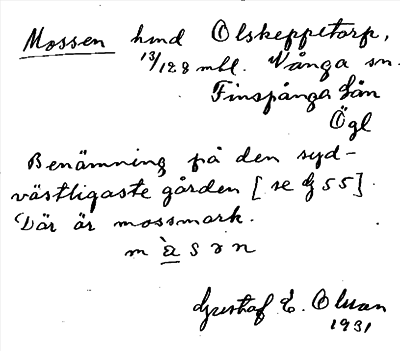 Mossen hmd Olskeppetorp,
13/128 mtl. Vånga sn.
Finspånga län
Ögl
Benämning på den syd-
västligaste gården [se § 55].
Där är mossmark.
m à s ɘ n
Gustaf E. Olsson
1931